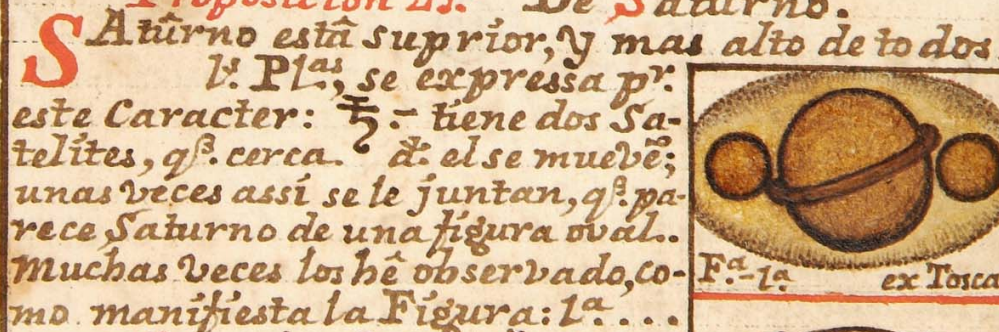 Proposicion 21. De Saturno.
SAtûrno estâ suprior, y mas alto de todos
ls. Plas., se expressa pr.
este Caracter: ♄.- tiene dos Sa-
telites, qs. cerca d. el se muevē;
unas veces assi se le juntan, qs. pa-
rece, Saturno de una figura oval..
Muchas veces los hê observado, co-
mo manifiesta la Figura: 1a. ...
Fa.-1a. ex Tosca